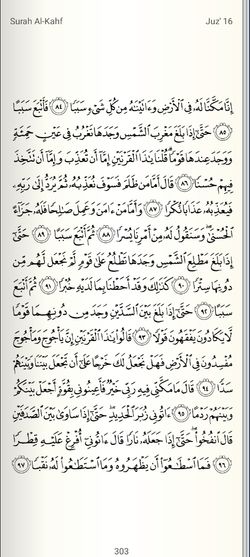 Surah Al-Kahf
Juz' 16
إِنَّا مَكَّنَّا لَهُۥ فِى ٱلْأَرْضِ وَءَاتَيْنَٰهُ مِن كُلِّ شَىْءٍ سَبَبًا ٨٤ فَأَتْبَعَ سَبَبًا
٨٥ حَتَّىٰٓ إِذَا بَلَغَ مَغْرِبَ ٱلشَّمْسِ وَجَدَهَا تَغْرُبُ فِى عَيْنٍ حَمِئَةٍ
وَوَجَدَ عِندَهَا قَوْمًا قُلْنَا يَٰذَا ٱلْقَرْنَيْنِ إِمَّآ أَن تُعَذِّبَ وَإِمَّآ أَن تَتَّخِذَ
فِيهِمْ حُسْنًا ٨٦ قَالَ أَمَّا مَن ظَلَمَ فَسَوْفَ نُعَذِّبُهُۥ ثُمَّ يُرَدُّ إِلَىٰ رَبِّهِۦ
فَيُعَذِّبُهُۥ عَذَابًا نُّكْرًا ٨٧ وَأَمَّا مَنْ ءَامَنَ وَعَمِلَ صَٰلِحًا فَلَهُۥ جَزَآءً
ٱلْحُسْنَىٰ وَسَنَقُولُ لَهُۥ مِنْ أَمْرِنَا يُسْرًا ٨٨ ثُمَّ أَتْبَعَ سَبَبًا ٨٩ حَتَّىٰٓ
إِذَا بَلَغَ مَطْلِعَ ٱلشَّمْسِ وَجَدَهَا تَطْلُعُ عَلَىٰ قَوْمٍ لَّمْ نَجْعَل لَّهُم مِّن
دُونِهَا سِتْرًا ٩٠ كَذَٰلِكَ وَقَدْ أَحَطْنَا بِمَا لَدَيْهِ خُبْرًا ٩١ ثُمَّ أَتْبَعَ
سَبَبًا ٩٢ حَتَّىٰٓ إِذَا بَلَغَ بَيْنَ ٱلسَّدَّيْنِ وَجَدَ مِن دُونِهِمَا قَوْمًا
لَّا يَكَادُونَ يَفْقَهُونَ قَوْلًا ٩٣ قَالُوا۟ يَٰذَا ٱلْقَرْنَيْنِ إِنَّ يَأْجُوجَ وَمَأْجُوجَ
مُفْسِدُونَ فِى ٱلْأَرْضِ فَهَلْ نَجْعَلُ لَكَ خَرْجًا عَلَىٰٓ أَن تَجْعَلَ بَيْنَنَا وَبَيْنَهُمْ
سَدًّا ٩٤ قَالَ مَا مَكَّنِّى فِيهِ رَبِّى خَيْرٌ فَأَعِينُونِى بِقُوَّةٍ أَجْعَلْ بَيْنَكُمْ
وَبَيْنَهُمْ رَدْمًا ٩٥ ءَاتُونِى زُبَرَ ٱلْحَدِيدِ حَتَّىٰٓ إِذَا سَاوَىٰ بَيْنَ ٱلصَّدَفَيْنِ
قَالَ ٱنفُخُوا۟ حَتَّىٰٓ إِذَا جَعَلَهُۥ نَارًا قَالَ ءَاتُونِىٓ أُفْرِغْ عَلَيْهِ قِطْرًا
٩٦ فَمَا ٱسْطَٰعُوٓا۟ أَن يَظْهَرُوهُ وَمَا ٱسْتَطَٰعُوا۟ لَهُۥ نَقْبًا ٩٧
303